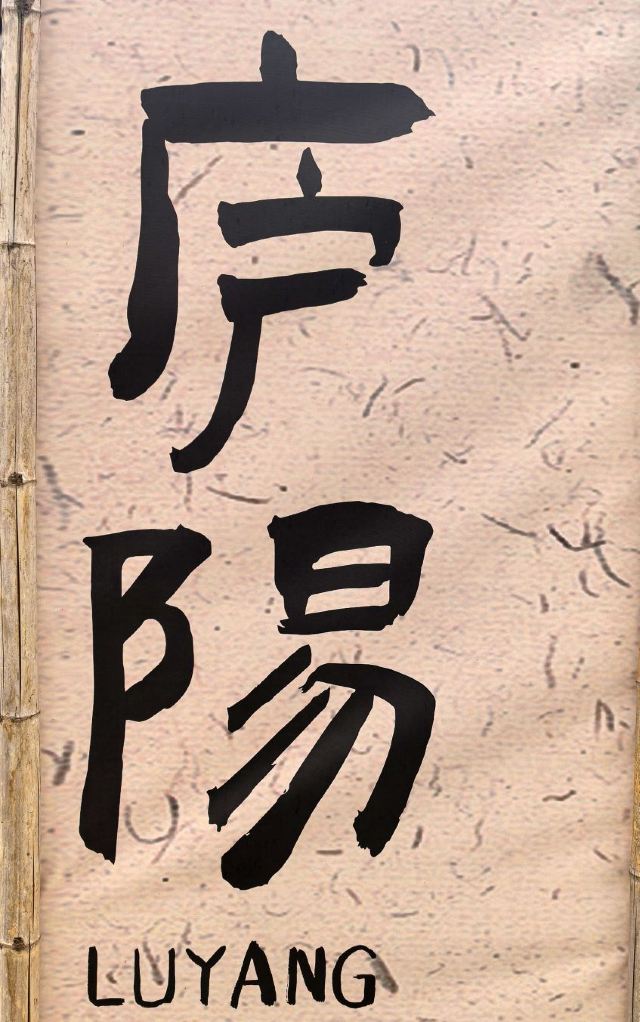 庐陽
LUYANG